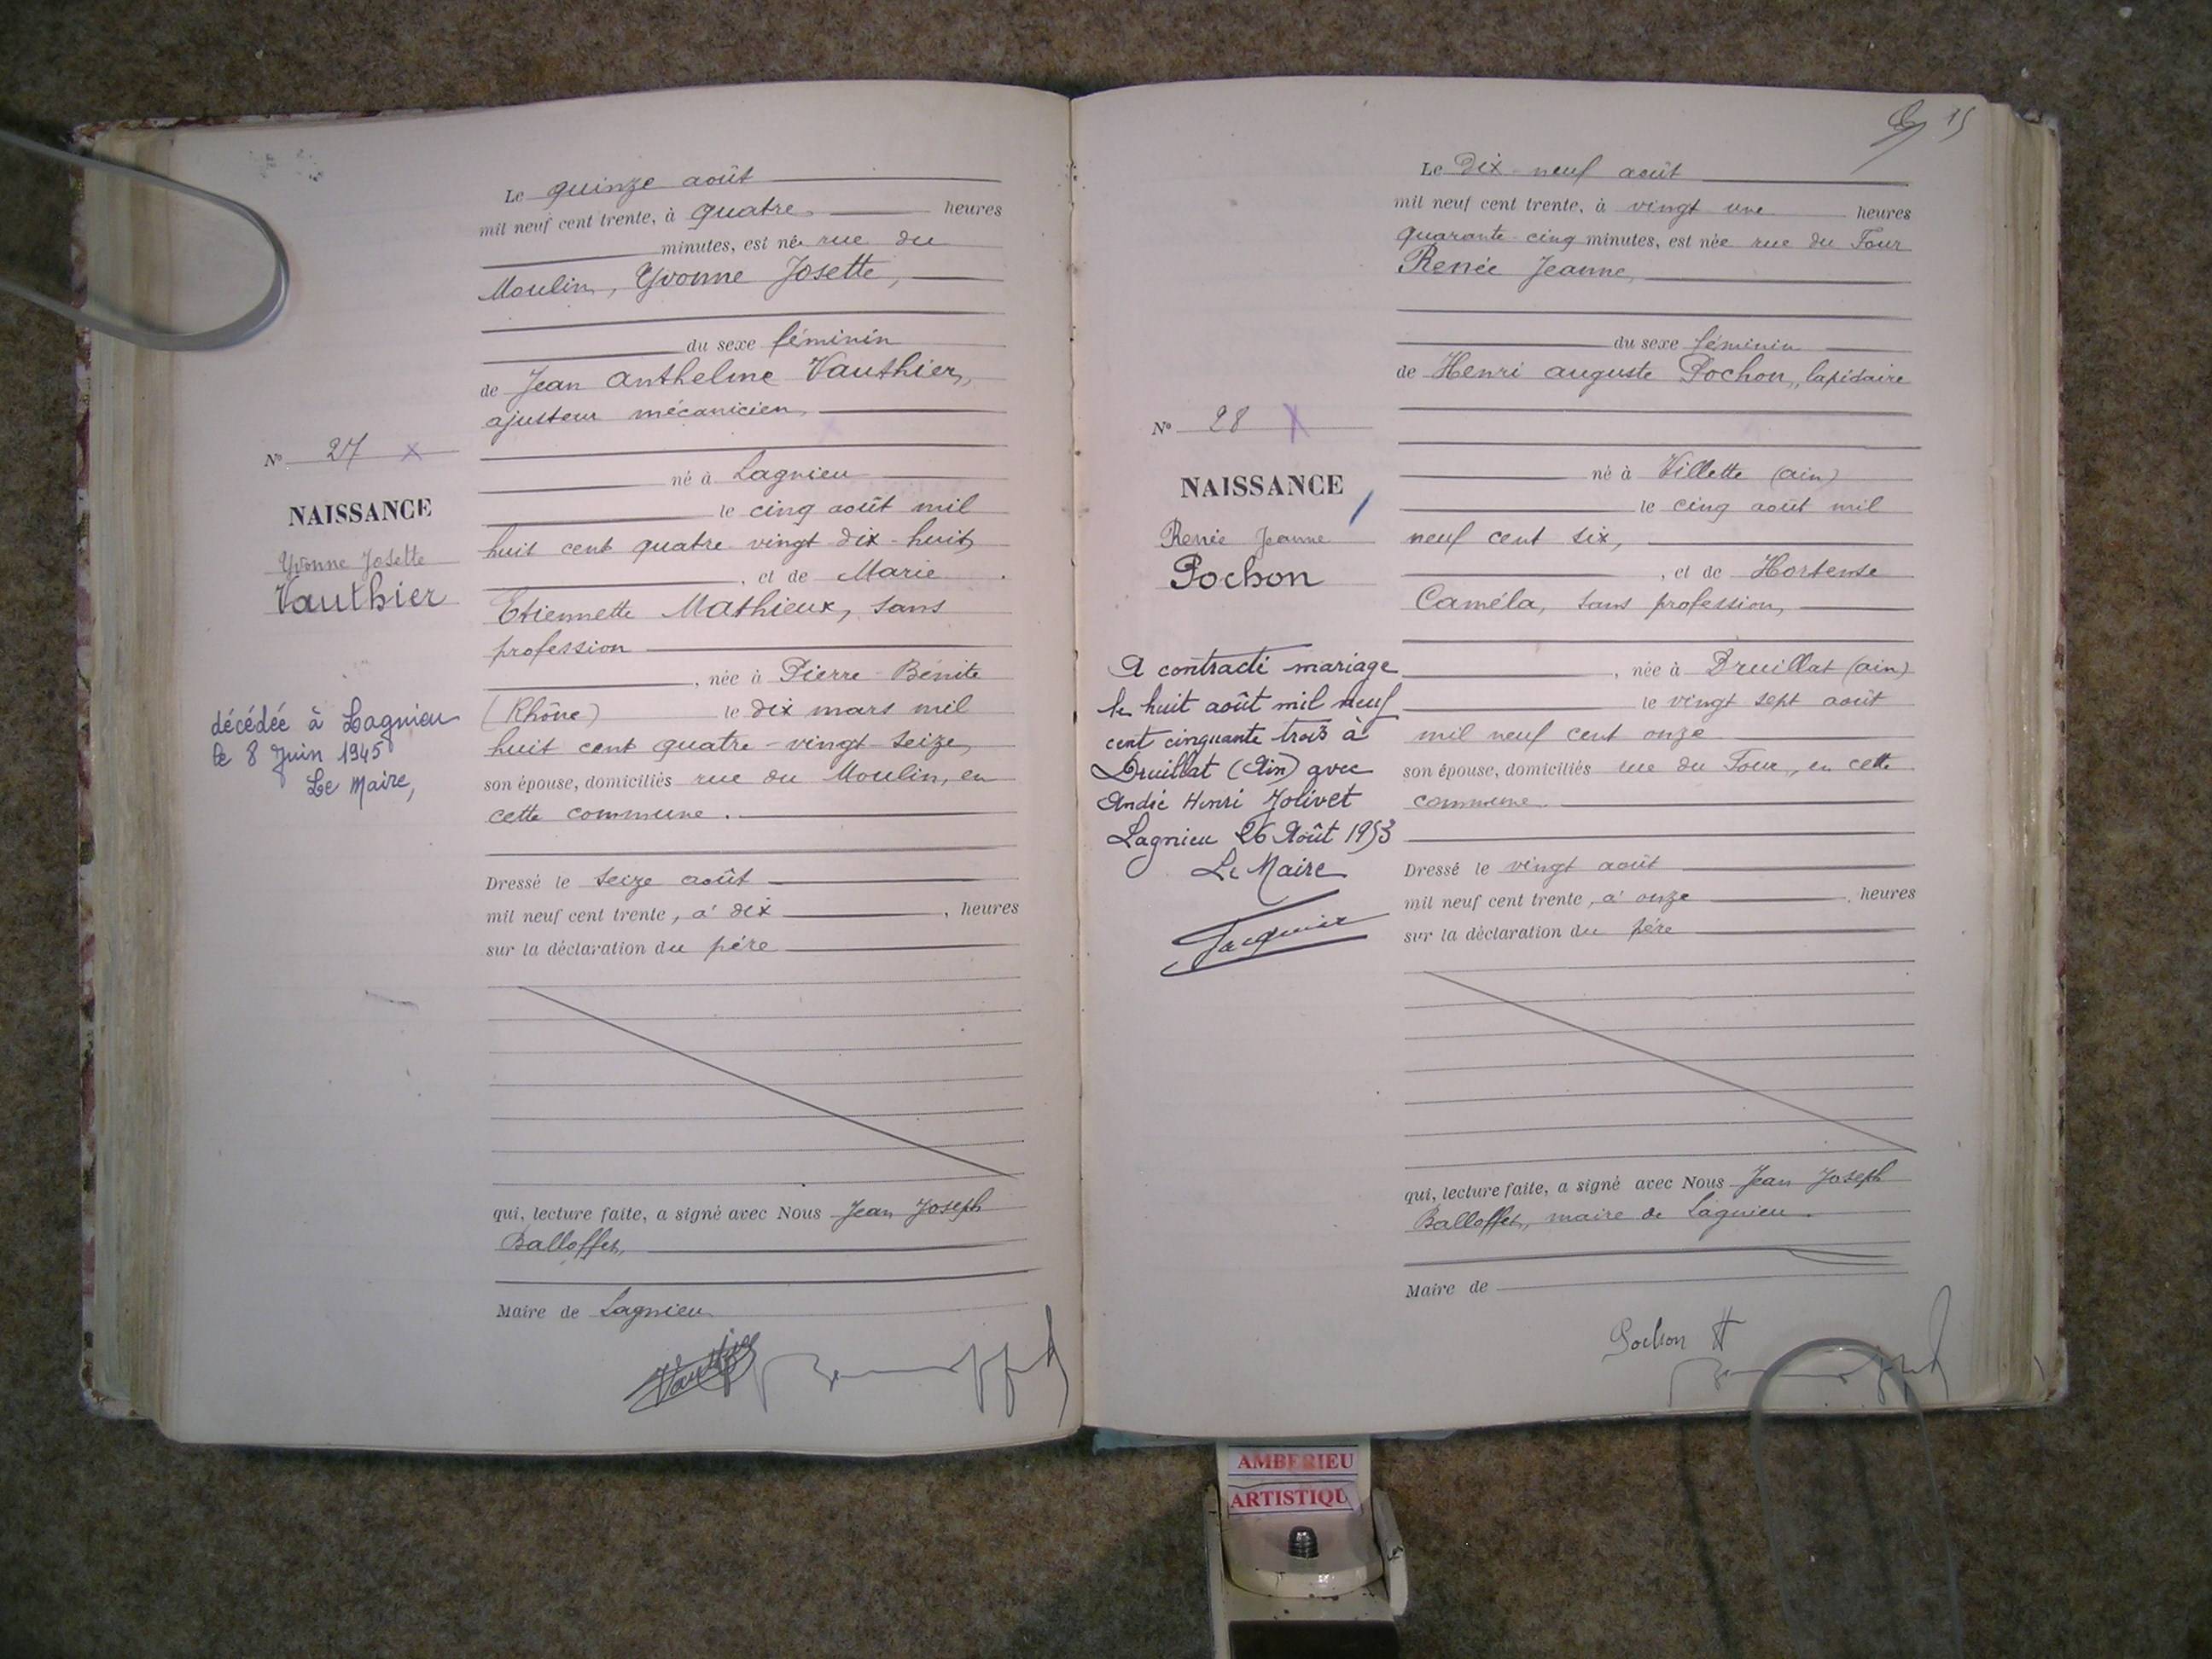 Le quinze août
mil neuf cent trente, à quatre heures
minutes, est née rue du
Moulin, Yvonne Josette,
du sexe féminin
de Jean Anthelme Vauthier,
ajusteur mécanicien,
N° 27 X
né à Lagnieu
NAISSANCE
le cinq août mil
huit cent quatre vingt dix-huit,
Yvonne Josette
Vauthier
, et de Marie
Etiennette Mathieux, sans
profession
, née à Pierre-Bénite
(Rhône) le dix mars mil
huit cent quatre-vingt-seize,
décédée à Lagnieu
le 8 Juin 1945
Le Maire,
son épouse, domiciliés rue du Moulin, en
cette commune.
Dressé le seize août
mil neuf cent trente, à dix , heures
sur la déclaration du père
qui, lecture faite, a signé avec Nous Jean Joseph
Balloffet,
Maire de Lagnieu
15
Le Dix-neuf août
mil neuf cent trente, à vingt une heures
quarante-cinq minutes, est née rue du Four
Renée Jeanne,
du sexe féminin
de Henri Auguste Pochon, lapidaire
N° 28 X
né à Villette (Ain)
NAISSANCE
le cinq août mil
neuf cent six,
Renée Jeanne
Pochon
, et de Hortense
Caméla, sans profession,
, née à Druillat (Ain)
le vingt sept août
mil neuf cent onze
A contracté mariage
le huit août mil neuf
cent cinquante trois à
Druillat (Ain) avec
André Henri Jolivet
Lagnieu 26 Août 1953
Le Maire
son épouse, domiciliés rue du Four, en cette
commune.
Dressé le vingt août
mil neuf cent trente, à onze , heures
sur la déclaration du père
qui, lecture faite, a signé avec Nous Jean Joseph
Balloffet, maire de Lagnieu.
Maire de
Pochon H
AMBERIEU
ARTISTIQU